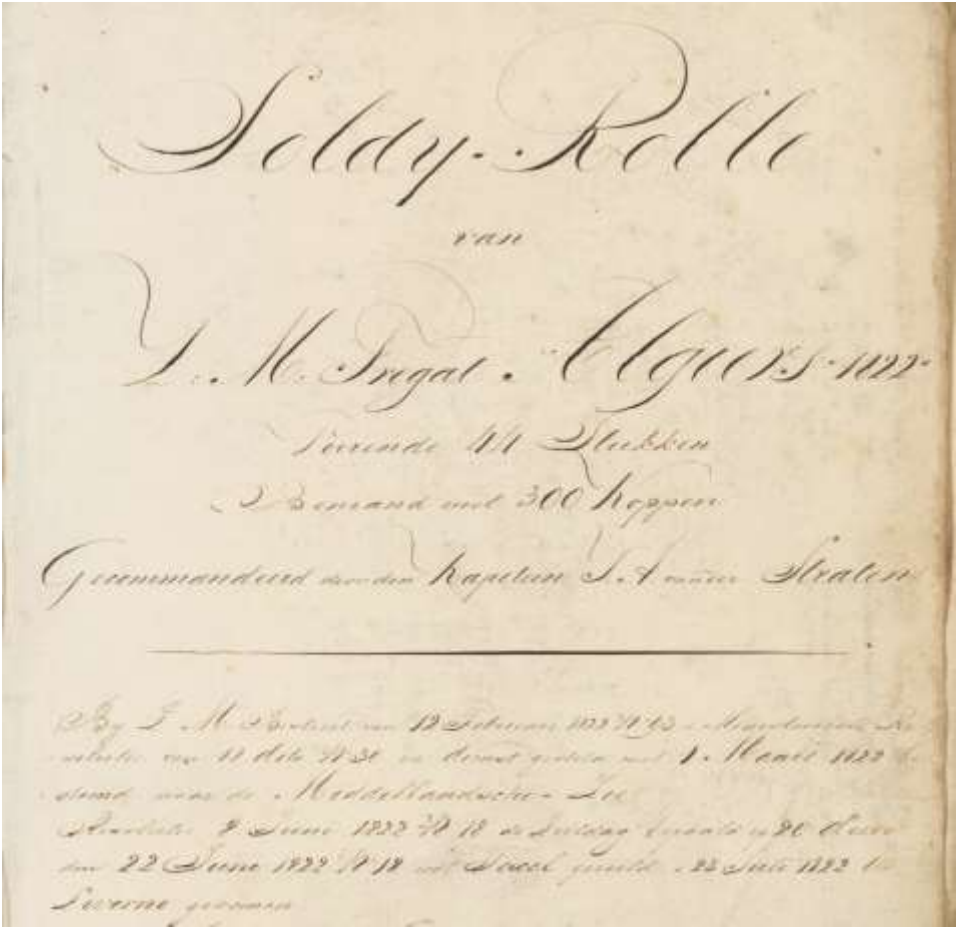 Soldy-Rolle
van
Z. M. Fregat. Algiers. 1822.
Voerende 44 Stukken
Bemand met 300 koppen
Gecommandeerd door den Kapitein J. A van der Straten
By Z. M. Besluit van 12 Februari 1822 N 63
van 18 dito N 31 in dienst gesteld met 1 Maart 1822
stemd naar de Middellandsche Zee
Resolutie 8 Juni 1822 N 18 de bepaald op 20
den 22 Juni 1822 N 18 uit Texel gezeild. 23 Juli 1822 te
Livorno gekomen